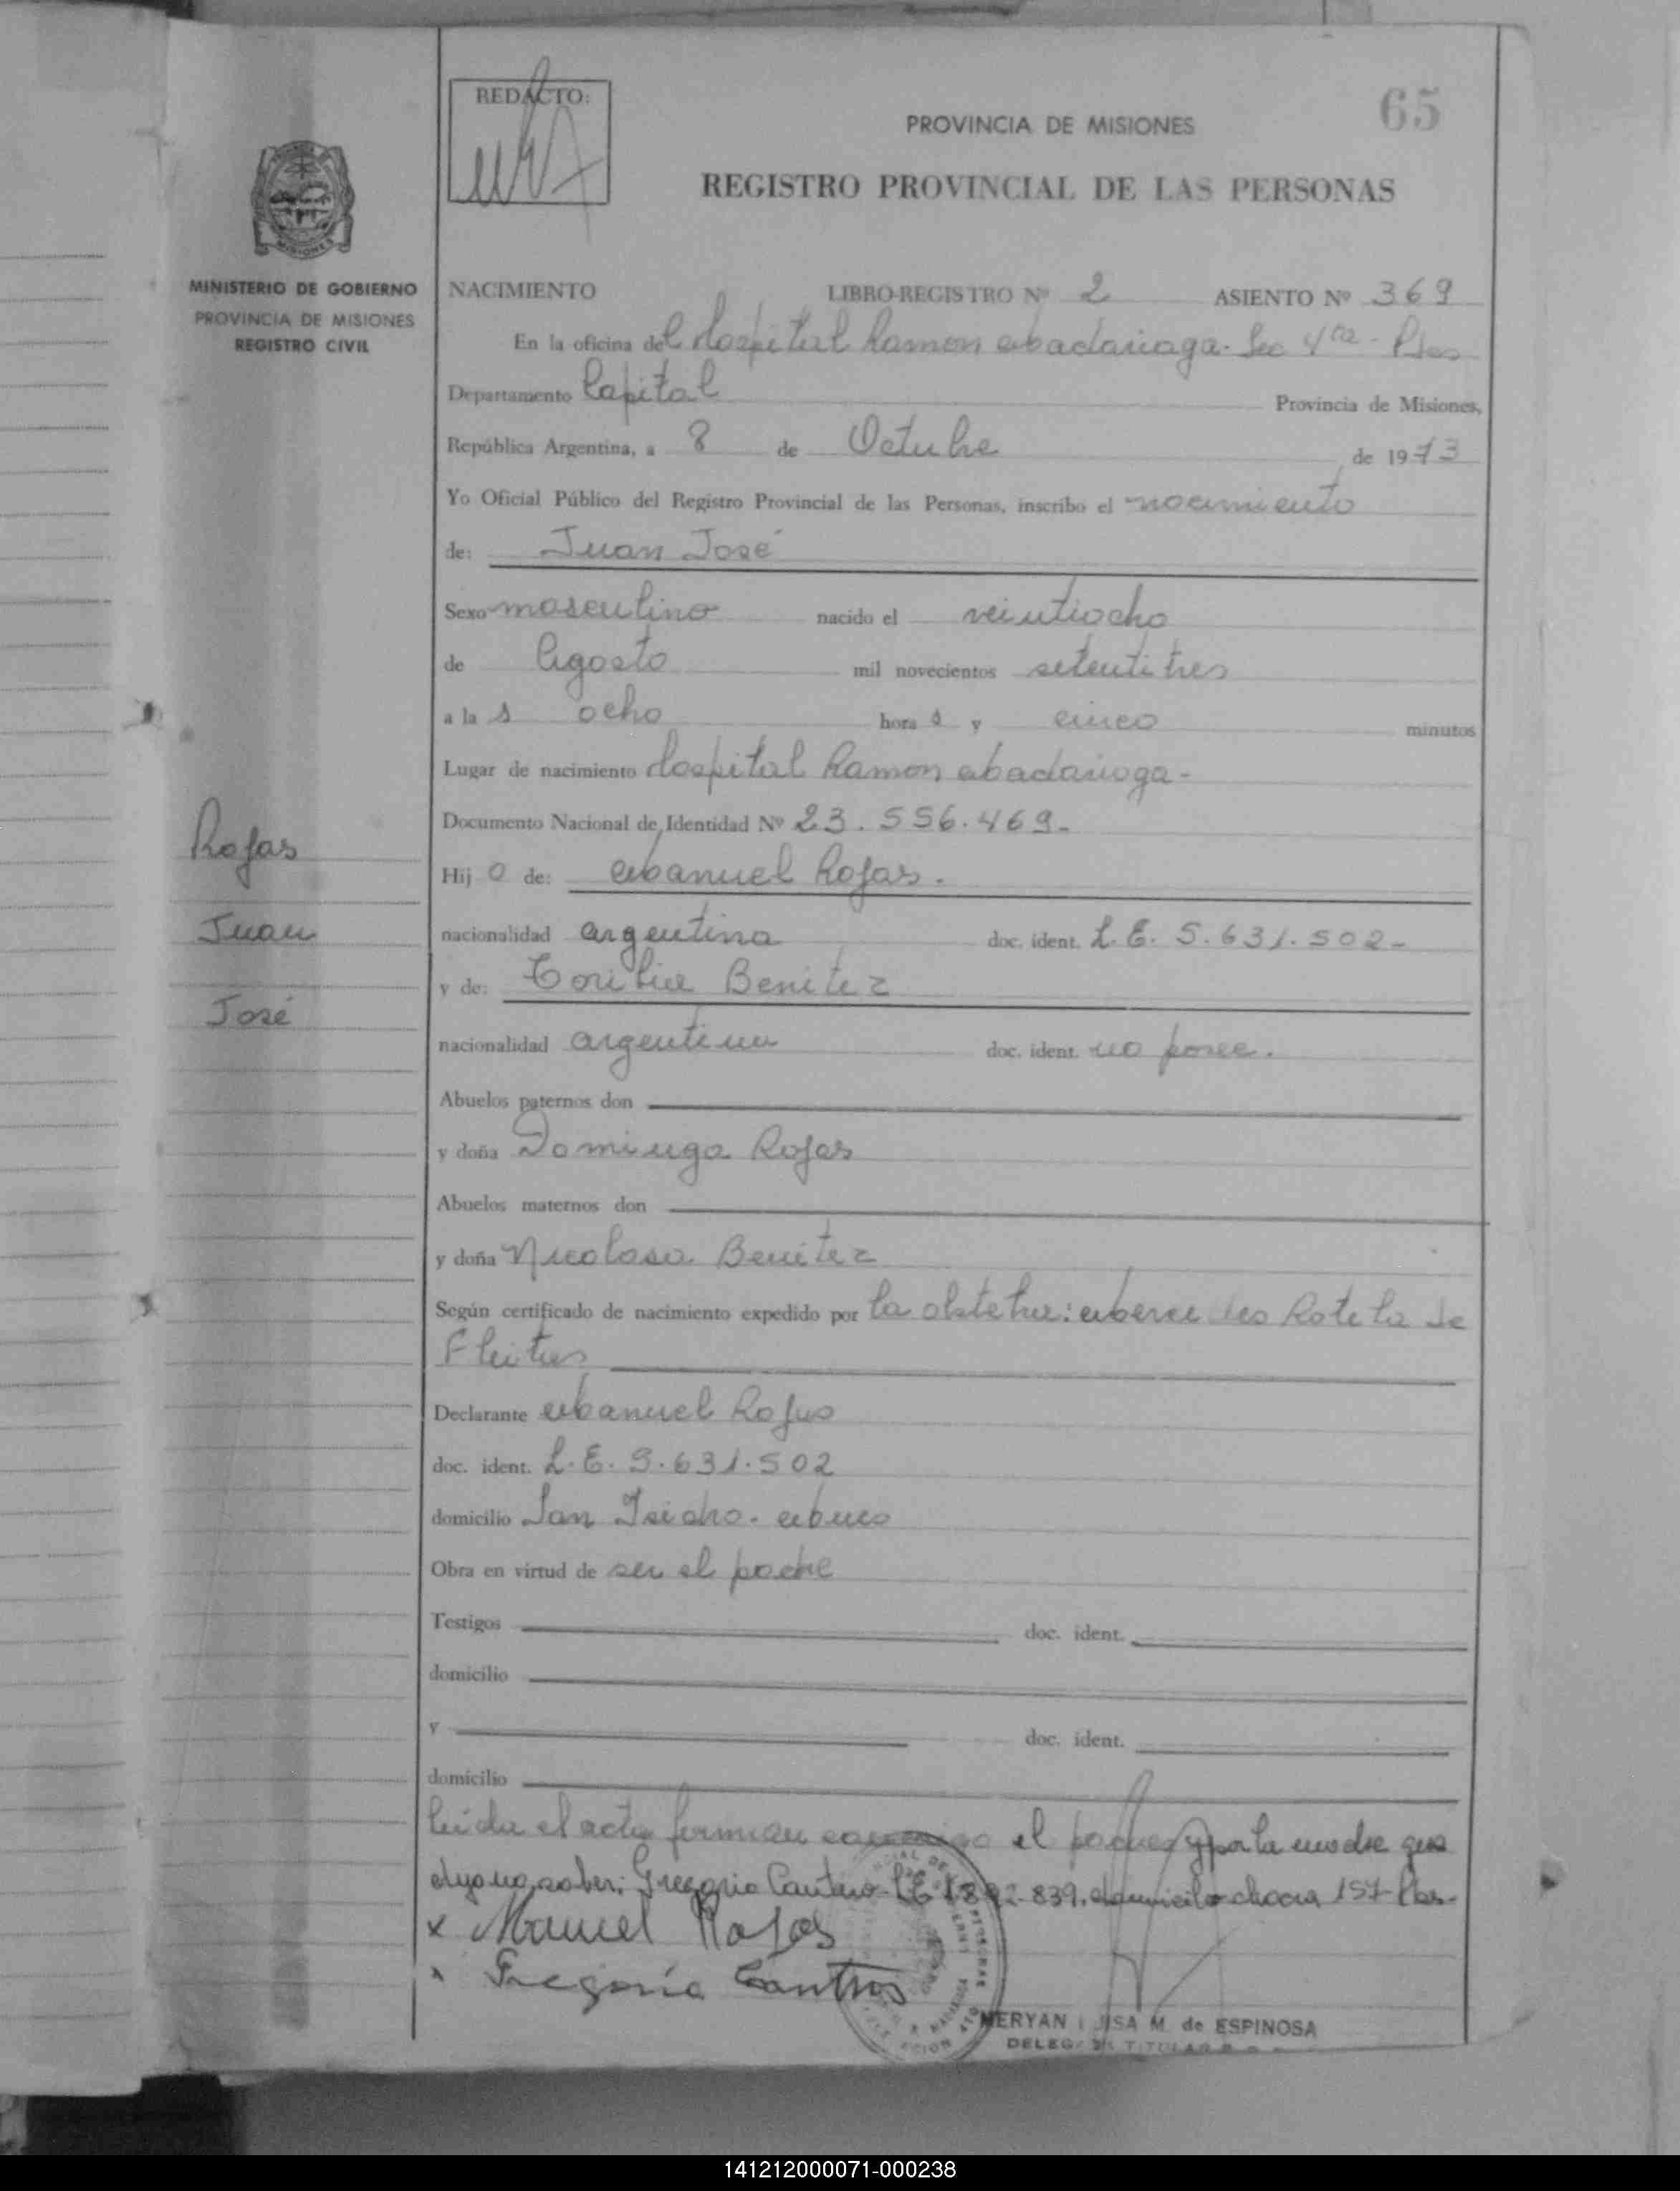 REDACTO:
65
PROVINCIA DE MISIONES
REGISTRO PROVINCIAL DE LAS PERSONAS
MISIONES
MINISTERIO DE GOBIERNO
PROVINCIA DE MISIONES
REGISTRO CIVIL
NACIMIENTO LIBRO-REGISTRO Nº 2 ASIENTO Nº 369
En la oficina del Hospital Ramon Madariaga. Sec 4ta - Pdas
Departamento Capital Provincia de Misiones,
República Argentina, a 8 de Octubre de 1973
Yo Oficial Público del Registro Provincial de las Personas, inscribo el nacimiento
de: Juan José
Sexo masculino nacido el veintiocho
de Agosto mil novecientos setentitres
a la s ocho hora s y cinco minutos
Lugar de nacimiento Hospital Ramon Madariaga-
Documento Nacional de Identidad Nº 23.556.469-
Hij o de: Manuel Rojas.
nacionalidad argentina doc. ident. L.E. 5.631.502-
y de: Toribia Benitez
nacionalidad argentina doc. ident. no posee.
Abuelos paternos don
y doña Dominga Rojas
Abuelos maternos don
y doña Nicolasa Benitez
Según certificado de nacimiento expedido por la obstetra: Mercedes Rotela de
Fleitas
Declarante Manuel Rojas
doc. ident. L.E. 5.631.502
domicilio San Isidro.
Obra en virtud de ser el padre
Testigos doc. ident.
domicilio
y doc. ident.
domicilio
leida el acta firman conmigo el padre y por la madre que
dijo no saber: Gregorio 839. domicilio chacra 157 Pdas.
x Manuel Rojas
x
MERYAN LUISA M. de ESPINOSA
TITULAR
Rojas
Juan
José
141212000071-000238